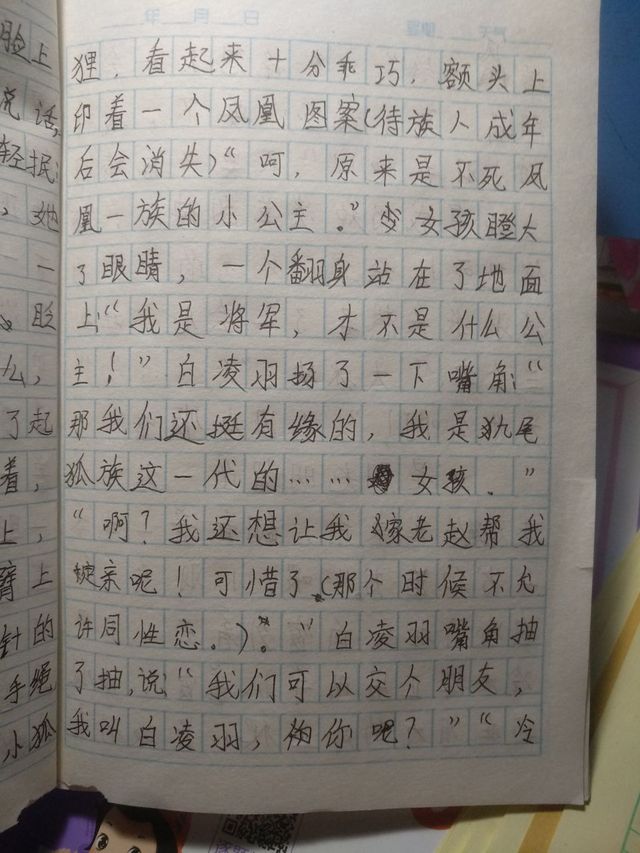 年 月 日
星期 天气
脸上
说话,
轻抿
,她
一
眨
么,
了起
着,
上,
臂上
针的
手绳
小狐
狸,看起来十分乖巧,额头上
印着一个凤凰图案(待族人成年
后会消失)“呵,原来是不死凤
凰一族的小公主。”女孩瞪大
了眼睛,一个翻身站在了地面
上:“我是将军,才不是什么公
主!”白凌羽扬了一下嘴角:“
那我们还挺有缘的,我是九尾
狐族这一代的……女孩.”
“啊?我还想让我嫁老赵帮我
定亲呢!可惜了(那个时候不允
许同性恋.)。”白凌羽嘴角抽
了抽,说:“我们可以交个朋友,
我叫白凌羽,你呢?”“冷